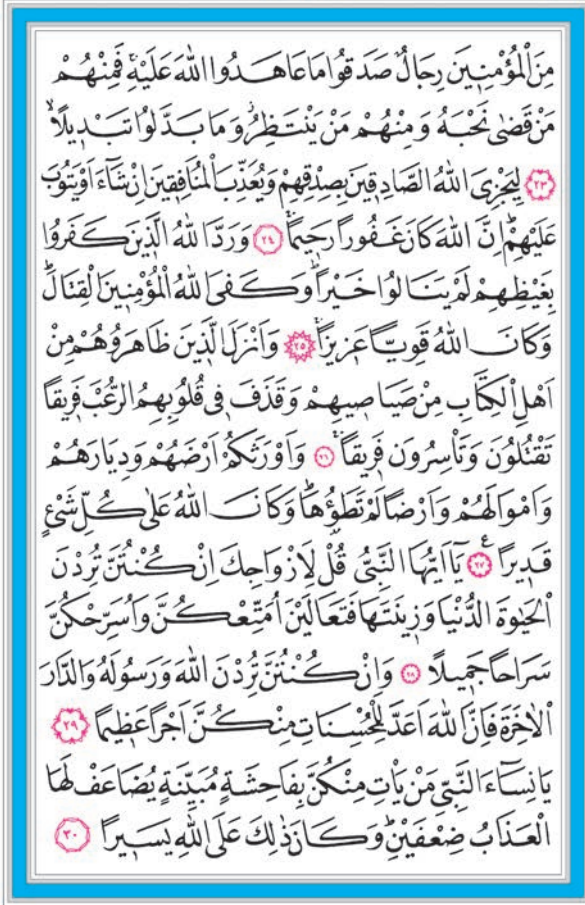 مِنَ الْمُؤْمِنٖينَ رِجَالٌ صَدَقُوا مَا عَاهَدُوا اللّٰهَ عَلَيْهِۚ فَمِنْهُمْ
مَنْ قَضٰى نَحْبَهُ وَمِنْهُمْ مَنْ يَنْتَظِرُۘ وَمَا بَدَّلُوا تَبْدٖيلًاۙ
﴿٢٣﴾ لِيَجْزِيَ اللّٰهُ الصَّادِقٖينَ بِصِدْقِهِمْ وَيُعَذِّبَ الْمُنَافِقٖينَ اِنْ شَٓاءَ اَوْ يَتُوبَ
عَلَيْهِمْۜ اِنَّ اللّٰهَ كَانَ غَفُورًا رَحٖيمًاۚ ﴿٢٤﴾ وَرَدَّ اللّٰهُ الَّذٖينَ كَفَرُوا
بِغَيْظِهِمْ لَمْ يَنَالُوا خَيْرًاۜ وَكَفَى اللّٰهُ الْمُؤْمِنٖينَ الْقِتَالَۜ
وَكَانَ اللّٰهُ قَوِيًّا عَزٖيزًاۚ ﴿٢٥﴾ وَاَنْزَلَ الَّذٖينَ ظَاهَرُوهُمْ مِنْ
اَهْلِ الْكِتَابِ مِنْ صَيَاصٖيهِمْ وَقَذَفَ فٖي قُلُوبِهِمُ الرُّعْبَ فَرٖيقًا
تَقْتُلُونَ وَتَأْسِرُونَ فَرٖيقًاۚ ﴿٢٦﴾ وَاَوْرَثَكُمْ اَرْضَهُمْ وَدِيَارَهُمْ
وَاَمْوَالَهُمْ وَاَرْضًا لَمْ تَطَؤُ۫هَاۜ وَكَانَ اللّٰهُ عَلٰى كُلِّ شَيْءٍ
قَدٖيرًا۟ ﴿٢٧﴾ ع يَٓا اَيُّهَا النَّبِيُّ قُلْ لِاَزْوَاجِكَ اِنْ كُنْتُنَّ تُرِدْنَ
الْحَيٰوةَ الدُّنْيَا وَزٖينَتَهَا فَتَعَالَيْنَ اُمَتِّعْكُنَّ وَاُسَرِّحْكُنَّ
سَرَاحًا جَمٖيلًا ﴿٢٨﴾ وَاِنْ كُنْتُنَّ تُرِدْنَ اللّٰهَ وَرَسُولَهُ وَالدَّارَ
الْاٰخِرَةَ فَاِنَّ اللّٰهَ اَعَدَّ لِلْمُحْسِنَاتِ مِنْكُنَّ اَجْرًا عَظٖيمًا ﴿٢٩﴾
يَا نِسَٓاءَ النَّبِيِّ مَنْ يَأْتِ مِنْكُنَّ بِفَاحِشَةٍ مُبَيِّنَةٍ يُضَاعَفْ لَهَا
الْعَذَابُ ضِعْفَيْنِۜ وَكَانَ ذٰلِكَ عَلَى اللّٰهِ يَسٖيرًا ﴿٣٠﴾